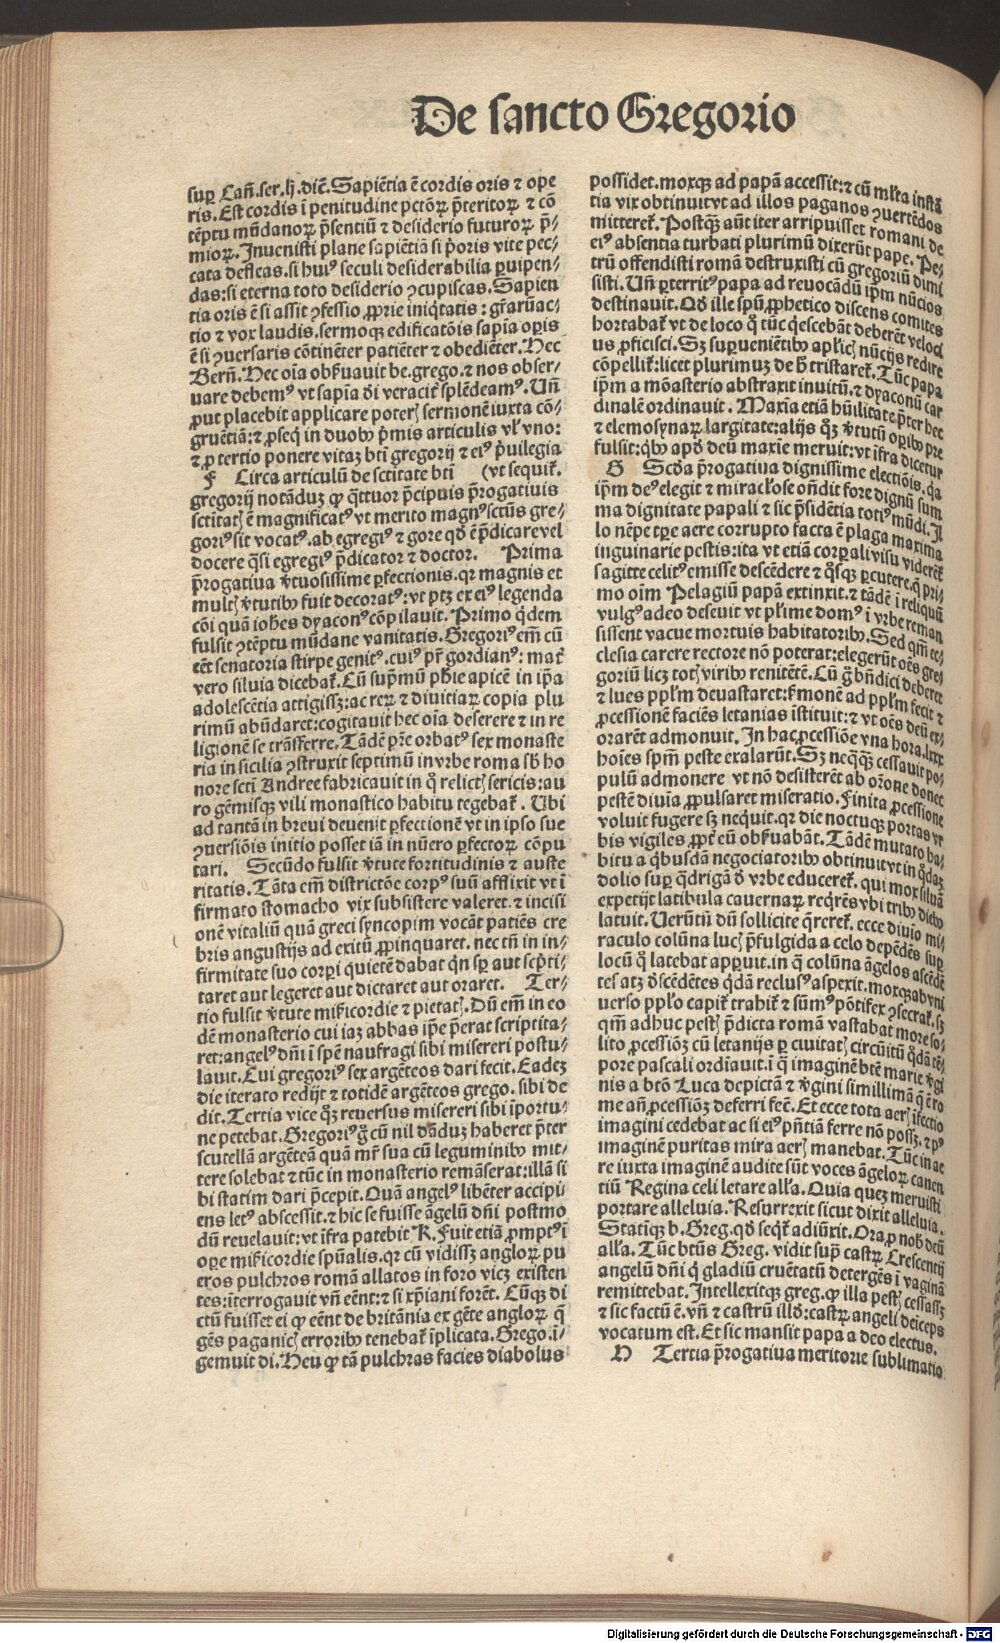 De sancto Gregorio
suꝑ Cañ.ser.ij.dicē.Sapiētia ē cordis oris ⁊ ope
ris.Est cordis ī penitudine pctōꝝ p̄teritoꝝ ⁊ cō
tēptu mūdanoꝝ p̄sentiū ⁊ desiderio futuroꝝ p̄-
mioꝝ.Inuenisti plane sapiētiā si p̄oris vite pec-
cata defleas.si huiꝰ seculi desiderabilia ꝑuipen-
das:si eterna toto desiderio ꝯcupiscas.Sapien
tia oris ē si assit ꝯfessio ꝓprie iniq̄tatis : gr̄aꝝ ac-
tio ⁊ vox laudis.sermoqꝫ edificatōis sapīa oꝑis
ē si ꝯuersaris cōtinēter patiēter ⁊ obediēter.Hec
Berñ.Hec oīa obẜuauit be.grego.⁊ nos obser-
uare debemꝰ vt sapīa dī veracit̉ splēdeamꝰ.Uñ
ꝓut placebit applicare poterꝭ sermonē iuxta cō-
gruētiā:⁊ ꝓseq̄ in duobꝰ p̄mis articulis vl̓ vno:
⁊ ꝓ tertio ponere vitaꝫ bt̄i gregorij ⁊ eiꝰ p̄uilegia
F Circa articulū de sctitate bt̄i (vt sequit̉.
gregorij notāduꝫ ꝙ q̄ttuor p̄cipuis p̄rogatiuis
sctitatꝭ ē magnificatꝰ vt merito magnꝰ sctūs gre-
goriꝰ sit vocatꝰ.ab egregiꝰ ⁊ gore qd̄ ē p̄dicare vel
docere q̄si egregiꝰ p̄dicator ⁊ doctor. Prima
p̄rogatiua v̓tuosissime ꝑfectionis.qr magnis et
multꝭ v̓tutibꝰ fuit decoratꝰ:vt ptꝫ ex eiꝰ legenda
cōi quā ioh̄es dyaconꝰ cōpilauit.Primo q̄dem
fulsit ꝯtēptu mūdane vanitatis.Gregoriꝰ em̄ cū
eēt senatoria stirpe genitꝰ.cuiꝰ pr̄ gordianꝰ: mat̉
vero siluia dicebat̉.Cū supmū ph̄ie apicē in ip̄a
adolescētia attigissꝫ:ac reꝝ ⁊ diuitiaꝝ copia plu
rimū abūdaret:cogitauit hec oīa deserere ⁊ in re
ligionē se trāsferre.Tādē pr̄e orbatꝰ sex monaste
ria in sicilia ꝯstruxit septimū in vrbe roma sb̄ ho
nore scti Andree fabricauit in q̊ relictꝭ sericis:au
ro gēmisqꝫ vili monastico habitu tegebat̉. Ubi
ad tantā in breui deuenit ꝑfectionē vt in ipso sue
ꝯuersiōis initio posset iā in nūero ꝑfectoꝝ cōpu
tari. Secūdo fulsit v̓tute fortitudinis ⁊ auste
ritatis.Tāta em̄ districtōe corpꝰ suū afflixit vt ī
firmato stomacho vix subsistere valeret.⁊ incisi
onē vitaliū quā greci syncopim vocāt patiēs cre
bris angustijs ad exitū ꝓpinquaret.nec tñ in in-
firmitate suo corꝑi quietē dabat qn̄ sꝑ aut scp̄ti-
taret aut legeret aut dictaret aut oraret. Ter-
tio fulsit v̓tute mīcordie ⁊ pietatꝭ.Dū em̄ in eo
dē monasterio cui iaꝫ abbas ip̄e p̄erat scriptita-
ret:angelꝰ dn̄i ī spē naufragi sibi misereri postu-
lauit.Cui gregoriꝰ sex argēteos dari fecit.Eadeꝫ
die iterato redijt ⁊ totidē argēteos grego. sibi de
dit.Tertia vice q̊ꝫ reuersus misereri sibi īportu-
ne petebat.Gregoriꝰ g̊ cū nil dāduꝫ haberet p̄ter
scutellā argēteā quā mr̄ sua cū leguminibꝰ mit-
tere solebat ⁊ tūc in monasterio remāserat:illā si
bi statim dari p̄cepit.Quā angelꝰ libēter accipi
ens letꝰ abscessit.⁊ hic se fuisse āgelū dn̄i postmo
dū reuelauit:vt īfra patebit K.Fuit etiā ꝓmptꝰ ī
oꝑe mīcordie spūalis.qr cū vidissꝫ angloꝝ pu
eros pulchros romā allatos in foro viciꝫ existen
tes:īterrogauit vñ eēnt:⁊ si xp̄iani forēt. Cūqꝫ di
ctū fuisset ei ꝙ eēnt de britānia ex gēte angloꝝ q̄
gēs paganicꝭ erroribꝰ tenebat̉ īplicata.Grego.ī-
gemuit di.Heu ꝙ tā pulchras facies diabolus
possidet.moxqꝫ ad papā accessit:⁊ cū ml̓ta instā
tia vix obtinuit vt ad illos paganos ꝯuertēdos
mitteret̉.Postqꝫ aūt iter arripuisset romani de
eiꝰ absentia turbati plurimū dixerūt pape. Pe-
trū offendisti romā destruxisti cū gregoriū dimi
sisti.Uñ ꝑterritꝰ papa ad reuocādū ip̄m nūcios
destinauit.Qd̄ ille spū ꝓphetico discens comites
hortabat̉ vt de loco q̊ tūc q̄escebāt deberēt veloci
us ꝓficisci.Sꝫ suꝑueniētibꝰ apl̓icꝭ nūcijs redire
cōpellit̉:licet plurimuꝫ de h̊ tristaret̉.Tūc papa
ip̄m a mōasterio abstraxit inuitū.⁊ dyaconū car
dinalē ordinauit. Maxīa etiā hūilitate p̄ter hec
⁊ elemosynaꝝ largitate:alijs q̊ꝫ v̓tutū oꝑibꝰ pre
fulsit:q̄bꝰ apd̓ deū maxīe meruit:vt īfra dicetur
G Scd̓a p̄rogatiua dignissime electiōis.q̄a
ip̄m deꝰ elegit ⁊ miracl̓ose oñdit fore dignū sum
ma dignitate papali ⁊ sic p̄sidētia totiꝰ mūdi.Il
lo nēpe tꝑe aere corrupto facta ē plaga maxima
inguinarie pestis:ita vt etiā corꝑali visu viderēt
sagitte celitꝰ emisse descēdere ⁊ q̊sqꝫ ꝑcutere.q̄ pri
mo oīm Pelagiū papā extinxit.⁊ tādē ī reliquū
vulgꝰ adeo deseuit vt pl̓ime domꝰ ī vrbe reman
sissent vacue mortuis habitatoribꝰ.Sed qm̄ ec-
clesia carere rectore nō poterat:elegerūt oēs gre
goriū licꝫ totꝭ viribꝰ renitētē.Cū g̊ bn̄dici deberet
⁊ lues ppl̓m deuastaret:ẜmonē ad ppl̓m fecit ⁊
ꝓcessionē faciēs letanias īstituit:⁊ vt oēs deū ex-
orarēt admonuit. In hac ꝓcessiōe vna hora.lxxx
hoīes spm̄ peste exalarūt.Sꝫ neqꝫqꝫ cessauit po-
pulū admonere vt nō desisterēt ab or̄one donec
pestē diuīa ꝓpulsaret miseratio.Finita ꝓcessione
voluit fugere sꝫ neq̄uit.qr die noctuqꝫ portas vr
bis vigiles ꝓpt̉ eū obẜuabāt. Tādē mutato ha-
bitu a q̄busdā negociatoribꝰ obtinuit vt in q̊daꝫ
dolio suꝑ q̄drigā d̓ vrbe educeret̉. qui mox siluā
expetijt latibula cauernaꝝ req̄rēs vbi tribꝰ diebꝰ
latuit.Uerūtñ dū sollicite q̄reret̉. ecce diuīo mi-
raculo colūna lucꝭ p̄fulgida a celo depēdēs suꝑ
locū q̊ latebat apꝑuit.in q̄ colūna āgelos ascēdē
tes atqꝫ d̓scēdētes q̄dā reclusꝰ aspexit.moxqꝫ ab vni
uerso ppl̓o capit̉ trahit̉ ⁊ sūmꝰ pōtifex ꝯsecrat̉.sꝫ
qm̄ adhuc pestꝭ p̄dicta romā vastabat more so-
lito ꝓcessiōꝫ cū letanijs ꝑ ciuitatꝭ circūitū q̊dā tē-
pore pascali ordīauit.ī q̄ imaginē bt̄e marie v̓gi
nis a bt̄o Luca depictā ⁊ v̓gini simillimā q̄ ē ro
me an̄ ꝓcessiōꝫ deferri fec̄.Et ecce tota aerꝭ īfectio
imagini cedebat ac si eiꝰ pn̄tiā ferre nō possꝫ.⁊ pꝰ
imaginē puritas mira aerꝭ manebat. Tūc in ae
re iuxta imaginē audite sūt voces āgeloꝝ canen
tiū Regina celi letare all̓a. Quia quez meruisti
portare alleluia.Resurrexit sicut dixit alleluia.
Statīqꝫ b.Greg.qd̄ seqt̉ adiūxit.Ora ꝓ nob̄ deū
all̓a. Tūc bt̄us Greg. vidit sup̄ castꝝ Crescentij
angelū dn̄i q̄ gladiū cruētatū detergēs ī vaginā
remittebat. Intellexitqꝫ greg.ꝙ illa pestꝭ cessassꝫ
⁊ sic factū ē.vñ ⁊ castrū illd̓:castꝝ angeli deiceps
vocatum est.Et sic mansit papa a deo electus.
H Tertia p̄rogatiua meritorie sublimatio
Digitalisierung gefördert durch die Deutsche Forschungsgemeinschaft - DFG